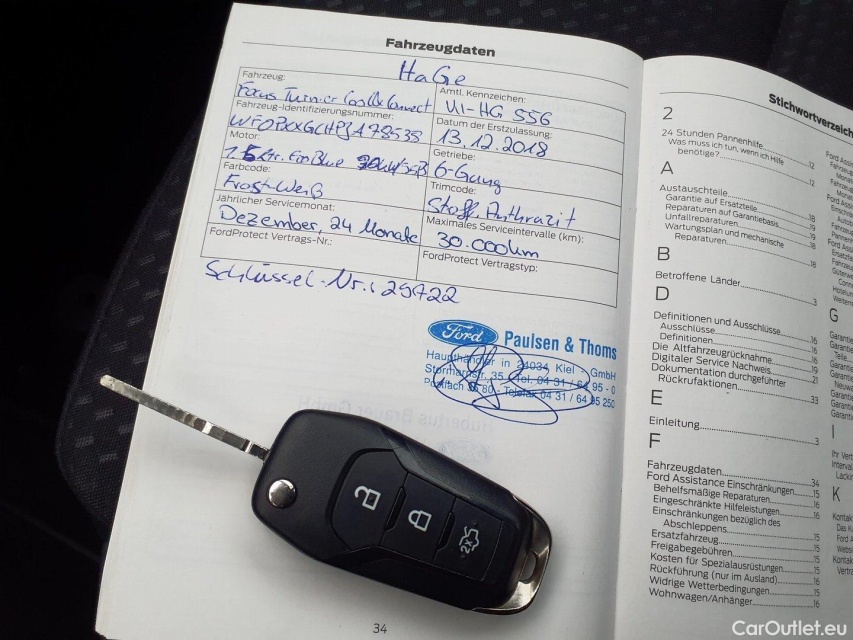 Fahrzeugdaten
HaGe
Fahrzeug:
Focus Turnier Cool & Connect
Amtl. Kennzeichen:
HG 556
Fahrzeug-Identifizierungsnummer:
Datum der Erstzulassung:
13.12.2018
Motor:
EcoBlue
Getriebe:
6-Gang
Farbcode:
Frost-Weiß
Trimcode:
Stoff, Anthrazit
Jährlicher Servicemonat:
Dezember, 24 Monate
Maximales Serviceintervalle (km):
30.000km
FordProtect Vertrags-Nr.:
FordProtect Vertragstyp:
Schlüssel-Nr.: 29422
Ford Paulsen & Thoms
Haupthändler in 24034 Kiel GmbH
Stormarnstr. 35 Tel. 04 31 / 64 95 - 0
Postfach 80 - Telefax 04 31 / 64 95 250
2x
34
Stichwortverzeich
2
24 Stunden Pannenhilfe 12
Was muss ich tun, wenn ich Hilfe
benötige? 12
A
Austauschteile 18
Garantie auf Ersatzteile 18
Reparaturen auf Garantiebasis 19
Unfallreparaturen 19
Wartungsplan und mechanische
Reparaturen 18
B
Betroffene Länder 3
D
Definitionen und Ausschlüsse 16
Ausschlüsse 16
Definitionen 16
Die Altfahrzeugrücknahme 19
Digitaler Service Nachweis 21
Dokumentation durchgeführter
Rückrufaktionen 33
E
Einleitung 3
F
Fahrzeugdaten 34
Ford Assistance Einschränkungen 15
Behelfsmäßige Reparaturen 16
Eingeschränkte Hilfeleistungen 16
Einschränkungen bezüglich des
Abschleppens 15
Ersatzfahrzeug 15
Freigabegebühren 15
Kosten für Spezialausrüstungen 15
Rückführung (nur im Ausland) 16
Widrige Wetterbedingungen 15
Wohnwagen/Anhänger 16
G
I
K
CarOutlet.eu